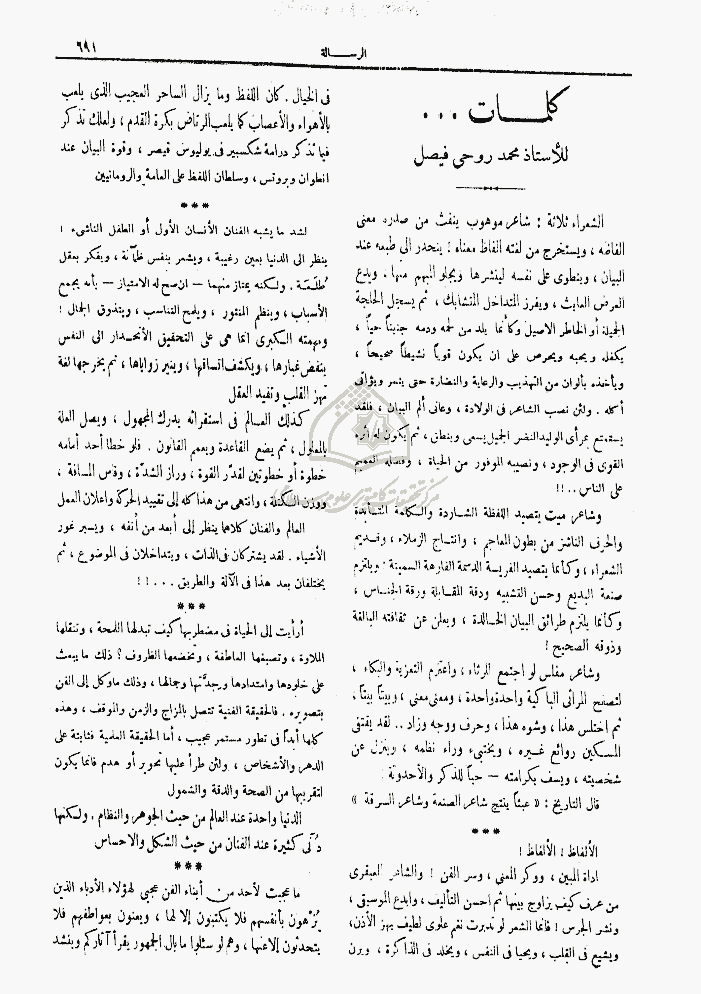 الرسالة
٦٩١
كلمات ...
للأستاذ محمد روحي فيصل
الشعراء ثلاثة : شاعر موهوب ينفث من صدره معنى
ألفاظه ، ويستخرج من لفته ألفاظ معناه : ينحدر الى طبعه عند
البيان ، وينطوى على نفسه لينشرها ويجلو المبهم منها . ويدع
العرض العابث ، ويفرز المتداخل المتشابك ، ثم يسجل الخلجة
الجميلة أو الخاطر الاصيل وكأنما يلد من لحمه ودمه جنيناً حياً ،
يكفله ويحبه ويحرص على ان يكون قوياً نشيطاً صحيحاً ،
ويأخذه بألوان من التهذيب والرعاية والنضارة حتى ينمو ويؤتى
أكله . ولئن نصب الشاعر فى الولادة ، وعانى ألم البيان ، فلقد
يستمتع بمرأى الوليد النضر الجميل يسمى وينطق ، ثم يكون له أثره
القوى فى الوجود ، ونصيبه الموفور من الحياة ، وفضله العميم
على الناس ..!!
وشاعر ميت يتصيد اللفظة الشاردة والكلمة
والحرف الناشز من بطون المعاجم ، وانتاج الزملاء ، وقديم
الشعراء ، وكأنما يتصيد الفريسة الدسمة الفارهة السمينة ويلتزم
صنعة البديع وحسن التشبيه ودقة المقابلة ورقة الجناس ،
وكأنما يلتزم طرائق البيان الخالدة ، ويعلن عن ثقافته البالغة
وذوقه الصحيح !
وشاعر مفلس لو اجتمع للرثاء ، واعتزم التعزية والبكاء ،
لتصفح المراثى الباكية واحدة واحدة ، ومعنى معنى ، وبيتاً بيتاً ،
ثم اختلس هذا ، وشوه هذا ، وحرف ووجه وزاد .. لقد يقتفى
المسكين روائع غيره ، ويختبىء وراء نظمه ، وينزل عن
شخصيته ، ويسف بكرامته – حباً للذكر والأحدوثة !
قال التاريخ : « عبثاً ينتج شاعر الصنعة وشاعر السرقة »
***
الألفاظ ! الألفاظ !
اداة المبين ، ووكر المعنى ، وسر الفن ! والشاعر العبقرى
من عرف كيف يزاوج بينها ثم احسن التأليف ، وابدع الموسيقى ،
ونشر الجرس ! فانما الشعر لو تدبرت نغم علوى لطيف يهز الأذن ،
ويشيع فى القلب ، ويحيا فى النفس ، ويخلد فى الذاكرة ، ويرن
فى الخيال . كان اللفظ وما يزال الساحر العجيب الذى يلعب
بالأهواء والأعصاب كما يلعب الرياضى بكرة القدم ، ولعلك تذكر
فيما تذكر دراسة شكسبير فى يوليوس قيصر ، وقوة البيان عند
انطوان وبروتس ، وسلطان اللفظ على العامة والرومانيين
***
لشد ما يشبه الفنان الأنسان الأول أو الطفل الناشىء !
ينظر الى الدنيا بعين رغيبة ، ويشعر بنفس ظمآنة ، ويفكر بعقل
طُلَعَة . ولكنه يمتاز منهما – ان صح له الامتياز – بأنه يجمع
الأسباب ، وينظم المنثور ، ويلمح التناسب ، ويتذوق الجمال !
ومهمته الكبرى انما هى على التحقيق الأنحدار الى النفس
ينفض غبارها ، ويكشف اتساقها ، وينير زواياها ، ثم يخرجها لغة
تهز القلب وتفيد العقل
كذلك العالم فى استقرائه يدرك المجهول ، ويصل العلة
بالمعلول ، ثم يضع القاعدة ويعمم القانون . فلو خطا أحد أمامه
خطوة أو خطوتين لقدّر القوة ، وراز الشدّة ، وقاس المسافة ،
ووزن الكتلة ، وانتهى من هذا كله إلى تقييد الحركة واعلان العمل
العالم والفنان كلاهما ينظر إلى أبعد من أنفه ، ويسبر غور
الأشياء . لقد يشتركان فى الذات ، ويتداخلان فى الموضوع ، ثم
يختلفان بعد هذا فى الآلة والطريق ...!!
***
أرأيت إلى الحياة فى مضطربها كيف تبدلها اللمحة ، وتنقلها
الملاوة ، وتصبغها العاطفة ، وتخضعها الظروف ؟ ذلك ما يبعث
على خلودها وامتدادها وجدّتها وجمالها ، وذلك ما وكل إلى الفن
بتصويره . فالحقيقة الفنية تتصل بالمزاج والزمن والموقف ، وهذه
كلها أبداً فى تطور مستمر عجيب ، أما الحقيقة العلمية فثابتة على
الدهر والأشخاص ، ولئن طرأ عليها تحوير أو هدم فانما يكون
لتقريبها من الصحة والدقة والشمول
الدنيا واحدة عند العالم من حيث الجوهر والنظام . ولكنها
دُنى كثيرة عند الفنان من حيث الشكل والاحساس
***
ما عجبت لأحد من أبناء الفن عجبى لهؤلاء الأدباء الذين
يُزهون بأنفسهم فلا يكتبون إلا لها ، ويعنون بعواطفهم فلا
يتحدثون إلا عنها ، وهم لو سئلوا ما بال الجمهور يقرأ آثاركم وينشد